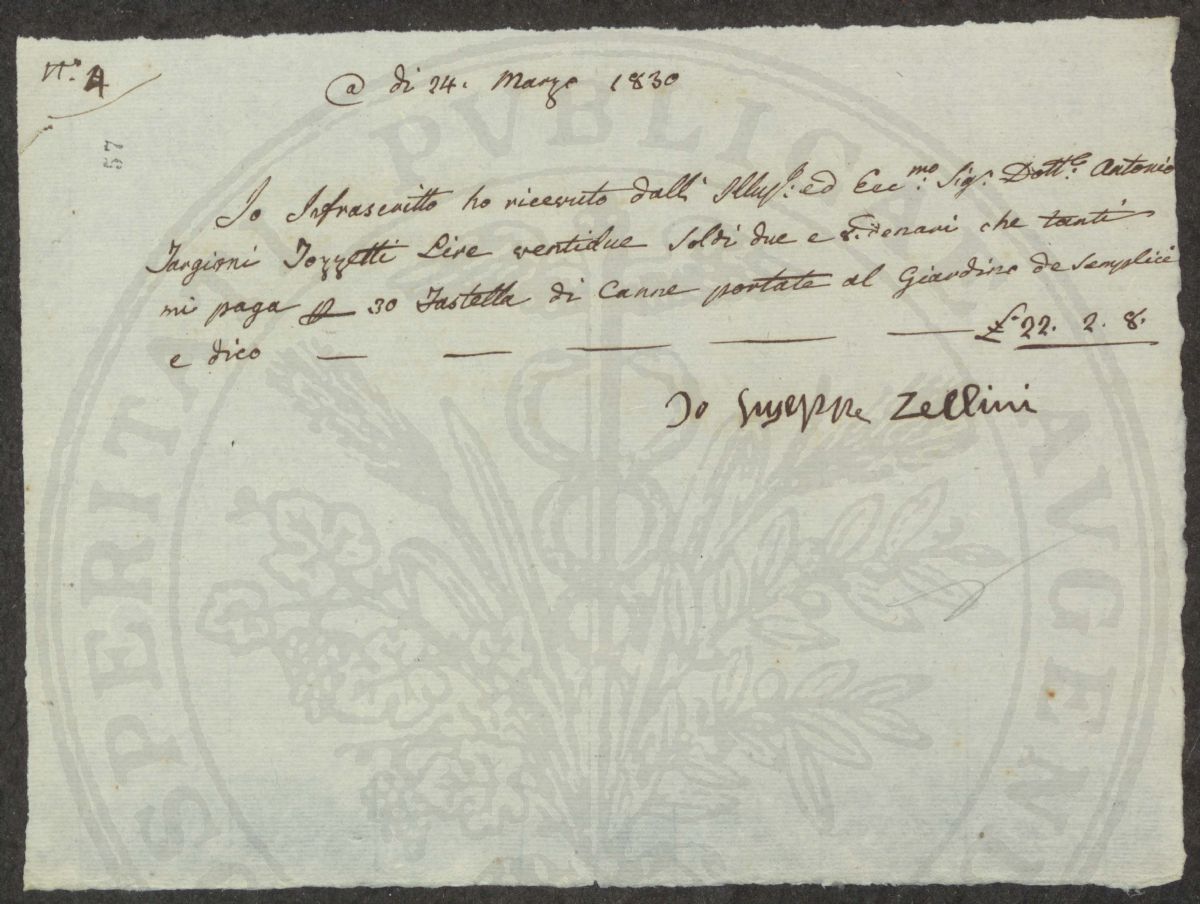 N.º 4
@ di 24. Marzo 1830
57
Io Infrascritto ho ricevuto dall' Ill ed Ecc.mo Sig.r Dott.e Antonio
Targioni Tozzetti Lire ventidue Soldi due e 8. denari che tanti
mi paga p 30 Fastella di Canne portate al Giardino de Semplici
e dico — — — — — £ 22. 2. 8.
Io Giuseppe Zellini
PVBLICAE
SPERITAT
AVGEN